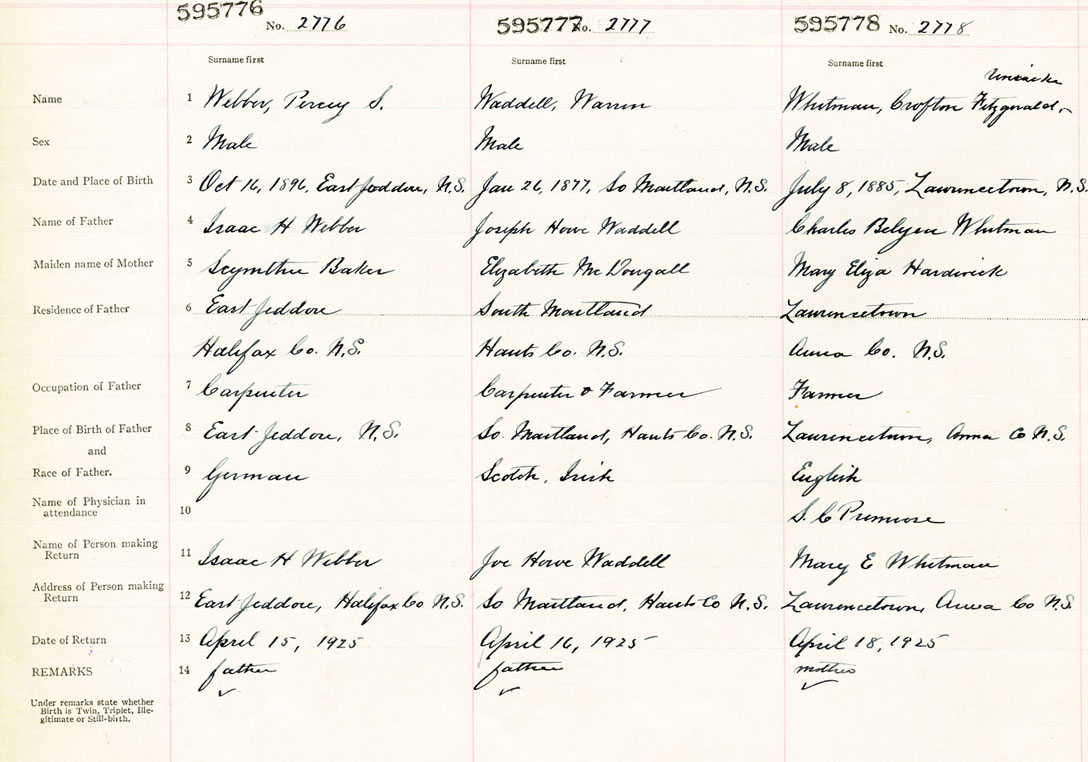 595776 No. 2776 595777 No. 2777 595778 No. 2778
Surname first Surname first Surname first
Uniacke
Name 1 Webber, Percey S. Waddell, Warren Whitman, Crofton Fitzgerald
Sex 2 Male Male Male
Date and Place of Birth 3 Oct 16, 1896, East Jeddore, N.S. Jan 26, 1877, So Maitland, N.S. July 8, 1885, Lawrencetown, N.S.
Name of Father 4 Isaac H Webber Joseph Howe Waddell Charles Whitman
Maiden name of Mother 5 Baker Elizabeth McDougall Mary Eliza Hardwick
Residence of Father 6 East Jeddore South Maitland Lawrencetown
Halifax Co. N.S. Hants Co. N.S. Anna Co. N.S.
Occupation of Father 7 Carpenter Carpenter & Farmer Farmer
Place of Birth of Father 8 East Jeddore, N.S. So. Maitland, Hants Co. N.S. Lawrencetown, Anna Co N.S.
and
Race of Father. 9 German Scotch, Irish English
Name of Physician in
attendance 10 S. C Primrose
Name of Person making
Return 11 Isaac H Webber Joe Howe Waddell Mary E Whitman
Address of Person making
Return 12 East Jeddore, Halifax Co N.S. So Maitland, Hants Co N.S. Lawrencetown, Anna Co N.S.
Date of Return 13 April 15, 1925 April 16, 1925 April 18, 1925
REMARKS 14 father father mother
Under remarks state whether
Birth is Twin, Triplet, Ille-
gitimate or Still-birth.